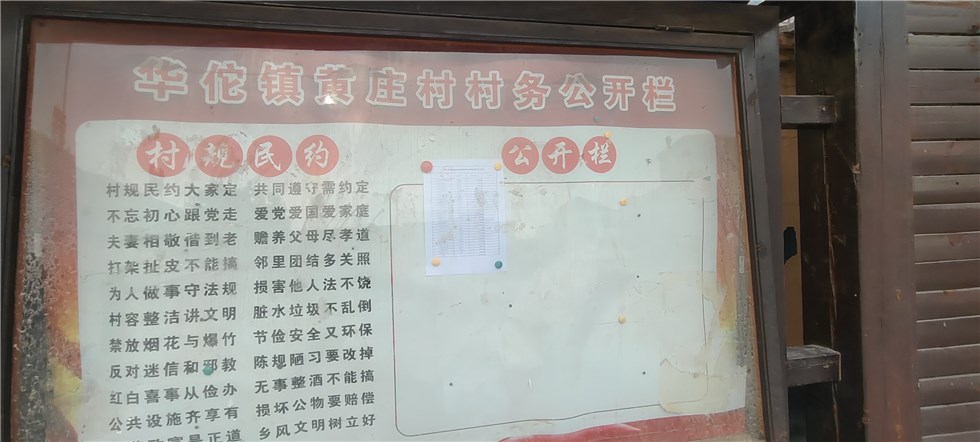 华佗镇黄庄村村务公开栏
村规民约
公开栏
村规民约大家定 共同遵守需约定
不忘初心跟党走 爱党爱国爱家庭
夫妻相敬偕到老 赡养父母尽孝道
打架扯皮不能搞 邻里团结多关照
为人做事守法规 损害他人法不饶
村容整洁讲文明 脏水垃圾不乱倒
禁放烟花与爆竹 节俭安全又环保
反对迷信和邪教 陈规陋习要改掉
红白喜事从俭办 无事整酒不能搞
公共设施齐享有 损坏公物要赔偿
是正道 乡风文明树立好